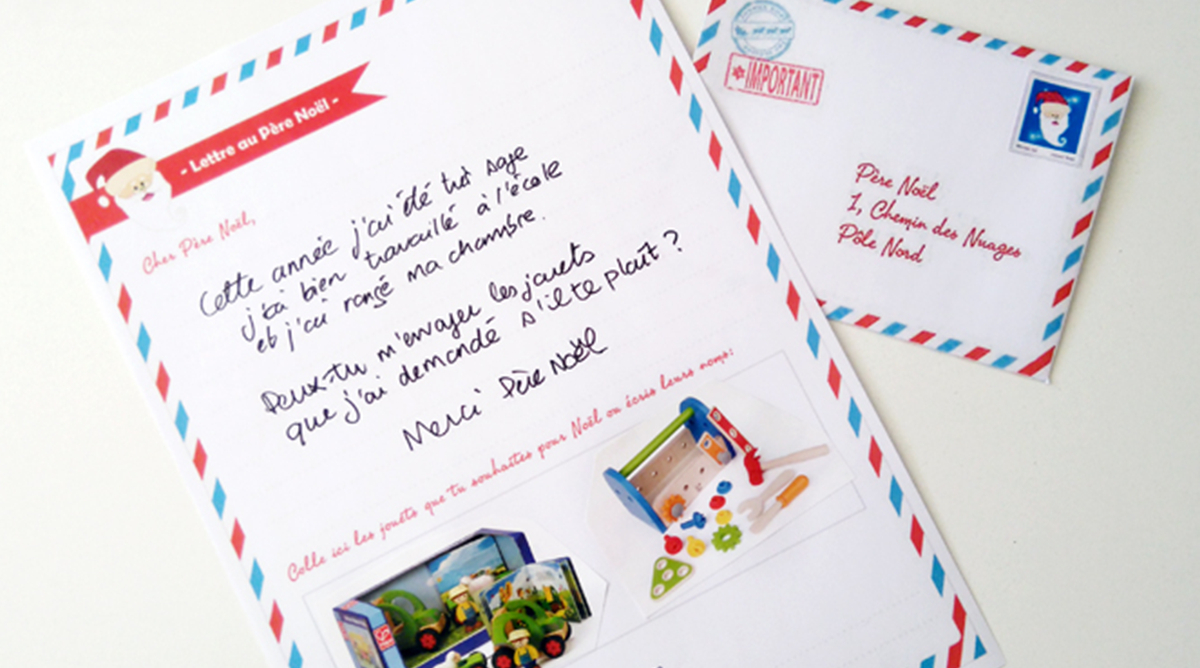 - Lettre au Père Noël -
Cher Père Noël,
Cette année j'ai été très sage
j'ai bien travaillé à l'école
et j'ai rangé ma chambre.
Peux-tu m'envoyer les jouets
que j'ai demandé s'il te plaît ?
Merci Père Noël
Colle ici les jouets que tu souhaites pour Noël ou écris leurs noms:
IMPORTANT
Père Noël
1, Chemin des Nuages
Pôle Nord